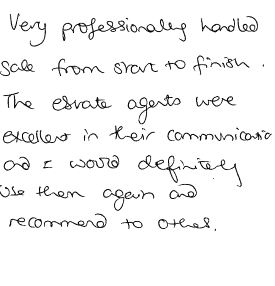 Very professionally handled
sale from start to finish.
The estate agents were
excellent in their communicatio
and I would definitely
use them again and
recommend to others.